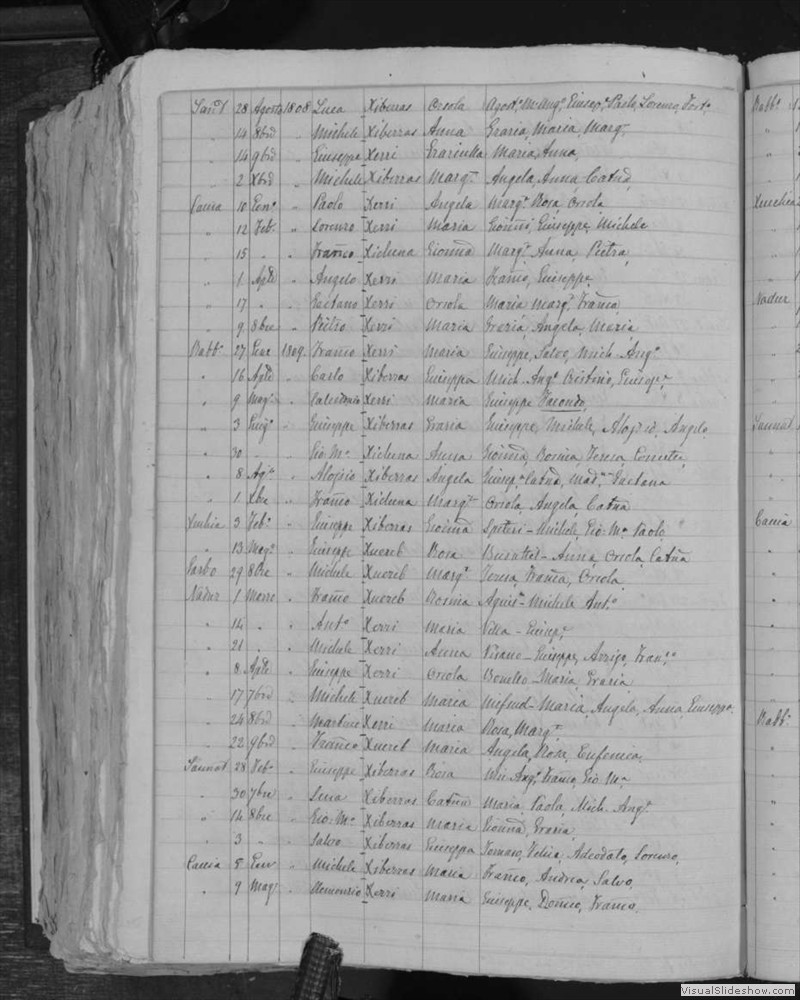 San.t 28 Agosto 1808 Luca Xiberras Orsola Agost.o M. Ang.o Giusep.e Paolo, Lorenzo, Fort.o
" 14 8bre " Michele Xiberras Anna Grazia, Maria, Marg.ta
" 14 9bre " Giuseppe Xerri Graziulla Maria, Anna,
" 2 Xbre " Michele Xiberras Marg.ta Angela, Anna, Catña,
Caccia 10 Gen.o " Paolo Xerri Angela Marg.ta Rosa Orsola
" 12 Feb. " Lorenzo Xerri Maria Gioññi, Giuseppe, Michele
" 15 " " Franco Xicluna Gioñña Marg.ta Anna, Pietra,
" 1 Aple " Angelo Xerri Maria Franco, Giuseppe,
" 17 " " Gaetano Xerri Orsola Maria Marg.ta Franca,
" 9 8bre " Pietro Xerri Maria Grazia, Angela, Maria
Rabb.o 27 Gene 1809 Franco Xerri Maria Giuseppe, Salvo, Mich. Ang.o
" 16 Aple " Carlo Xiberras Giuseppa Mich. Ang.o Cristina, Giusep.e
" 9 Mag.o " Xerri Maria Giuseppe
" 3 Giug.o " Giuseppe Xiberras Grazia Giuseppe, Michele, Aloisio, Angelo
" 30 " " Gio: M.a Xicluna Anna Gioñña, Rosina, Teresa,
" 8 Ag.o " Aloisio Xiberras Angela Giusep.a Catña, Mad.na Gaetana
" 1 Xbre " Franco Xicluna Marg.ta Orsola, Angela, Catña
Xeuchia 3 Feb.o " Giuseppe Xiberras Gioñña Spiteri - Michele, Gio: M.a Paolo
" 13 Mag.o " Giuseppe Xuereb Rosa Busuttil - Anna, Orsola, Catña
Garbo 29 8bre " Michele Xuereb Marg.ta Teresa, Franca, Orsola
Nadur 1 Marzo " Franco Xuereb Rosina Aquis.a - Michele Ant.o
" 14 " " Ant.o Xerri Maria Vella - Giusep.e
" 21 " " Michele Xerri Anna Pisano - Giuseppe, Arrigo, Fran.co
" 8 Aple " Giuseppe Xerri Orsola Bonello - Maria, Grazia
" 17 7bre " Michele Xuereb Maria Mifsud - Maria, Angela, Anna, Giuseppa
" 24 8bre " Martino Xerri Maria Rosa, Marg.ta
" 22 9bre " Franco Xuereb Maria Angela, Rosa, Eufemia,
Sannat 28 Feb.o " Giuseppe Xiberras Rosa Mic. Ang.o Franco, Gio: M.a
" 30 7bre " Luca Xiberras Catña Maria, Paola, Mich. Ang.o
" 14 8bre " Gio: M.a Xiberras Maria Gioñña, Grazia
" 3 " " Salvo Xiberras Giuseppa Tomaso, Felice, Adeodato, Lorenzo,
Caccia 5 Gene " Michele Xiberras Maria Franco, Andrea, Salvo,
" 9 Mag.o " Xerri Maria Giuseppe, Domco, Franca,
Rabb.o
Xeuchia
Nadur
Sannat
Caccia
Rabb.o
VisualSlideshow.com